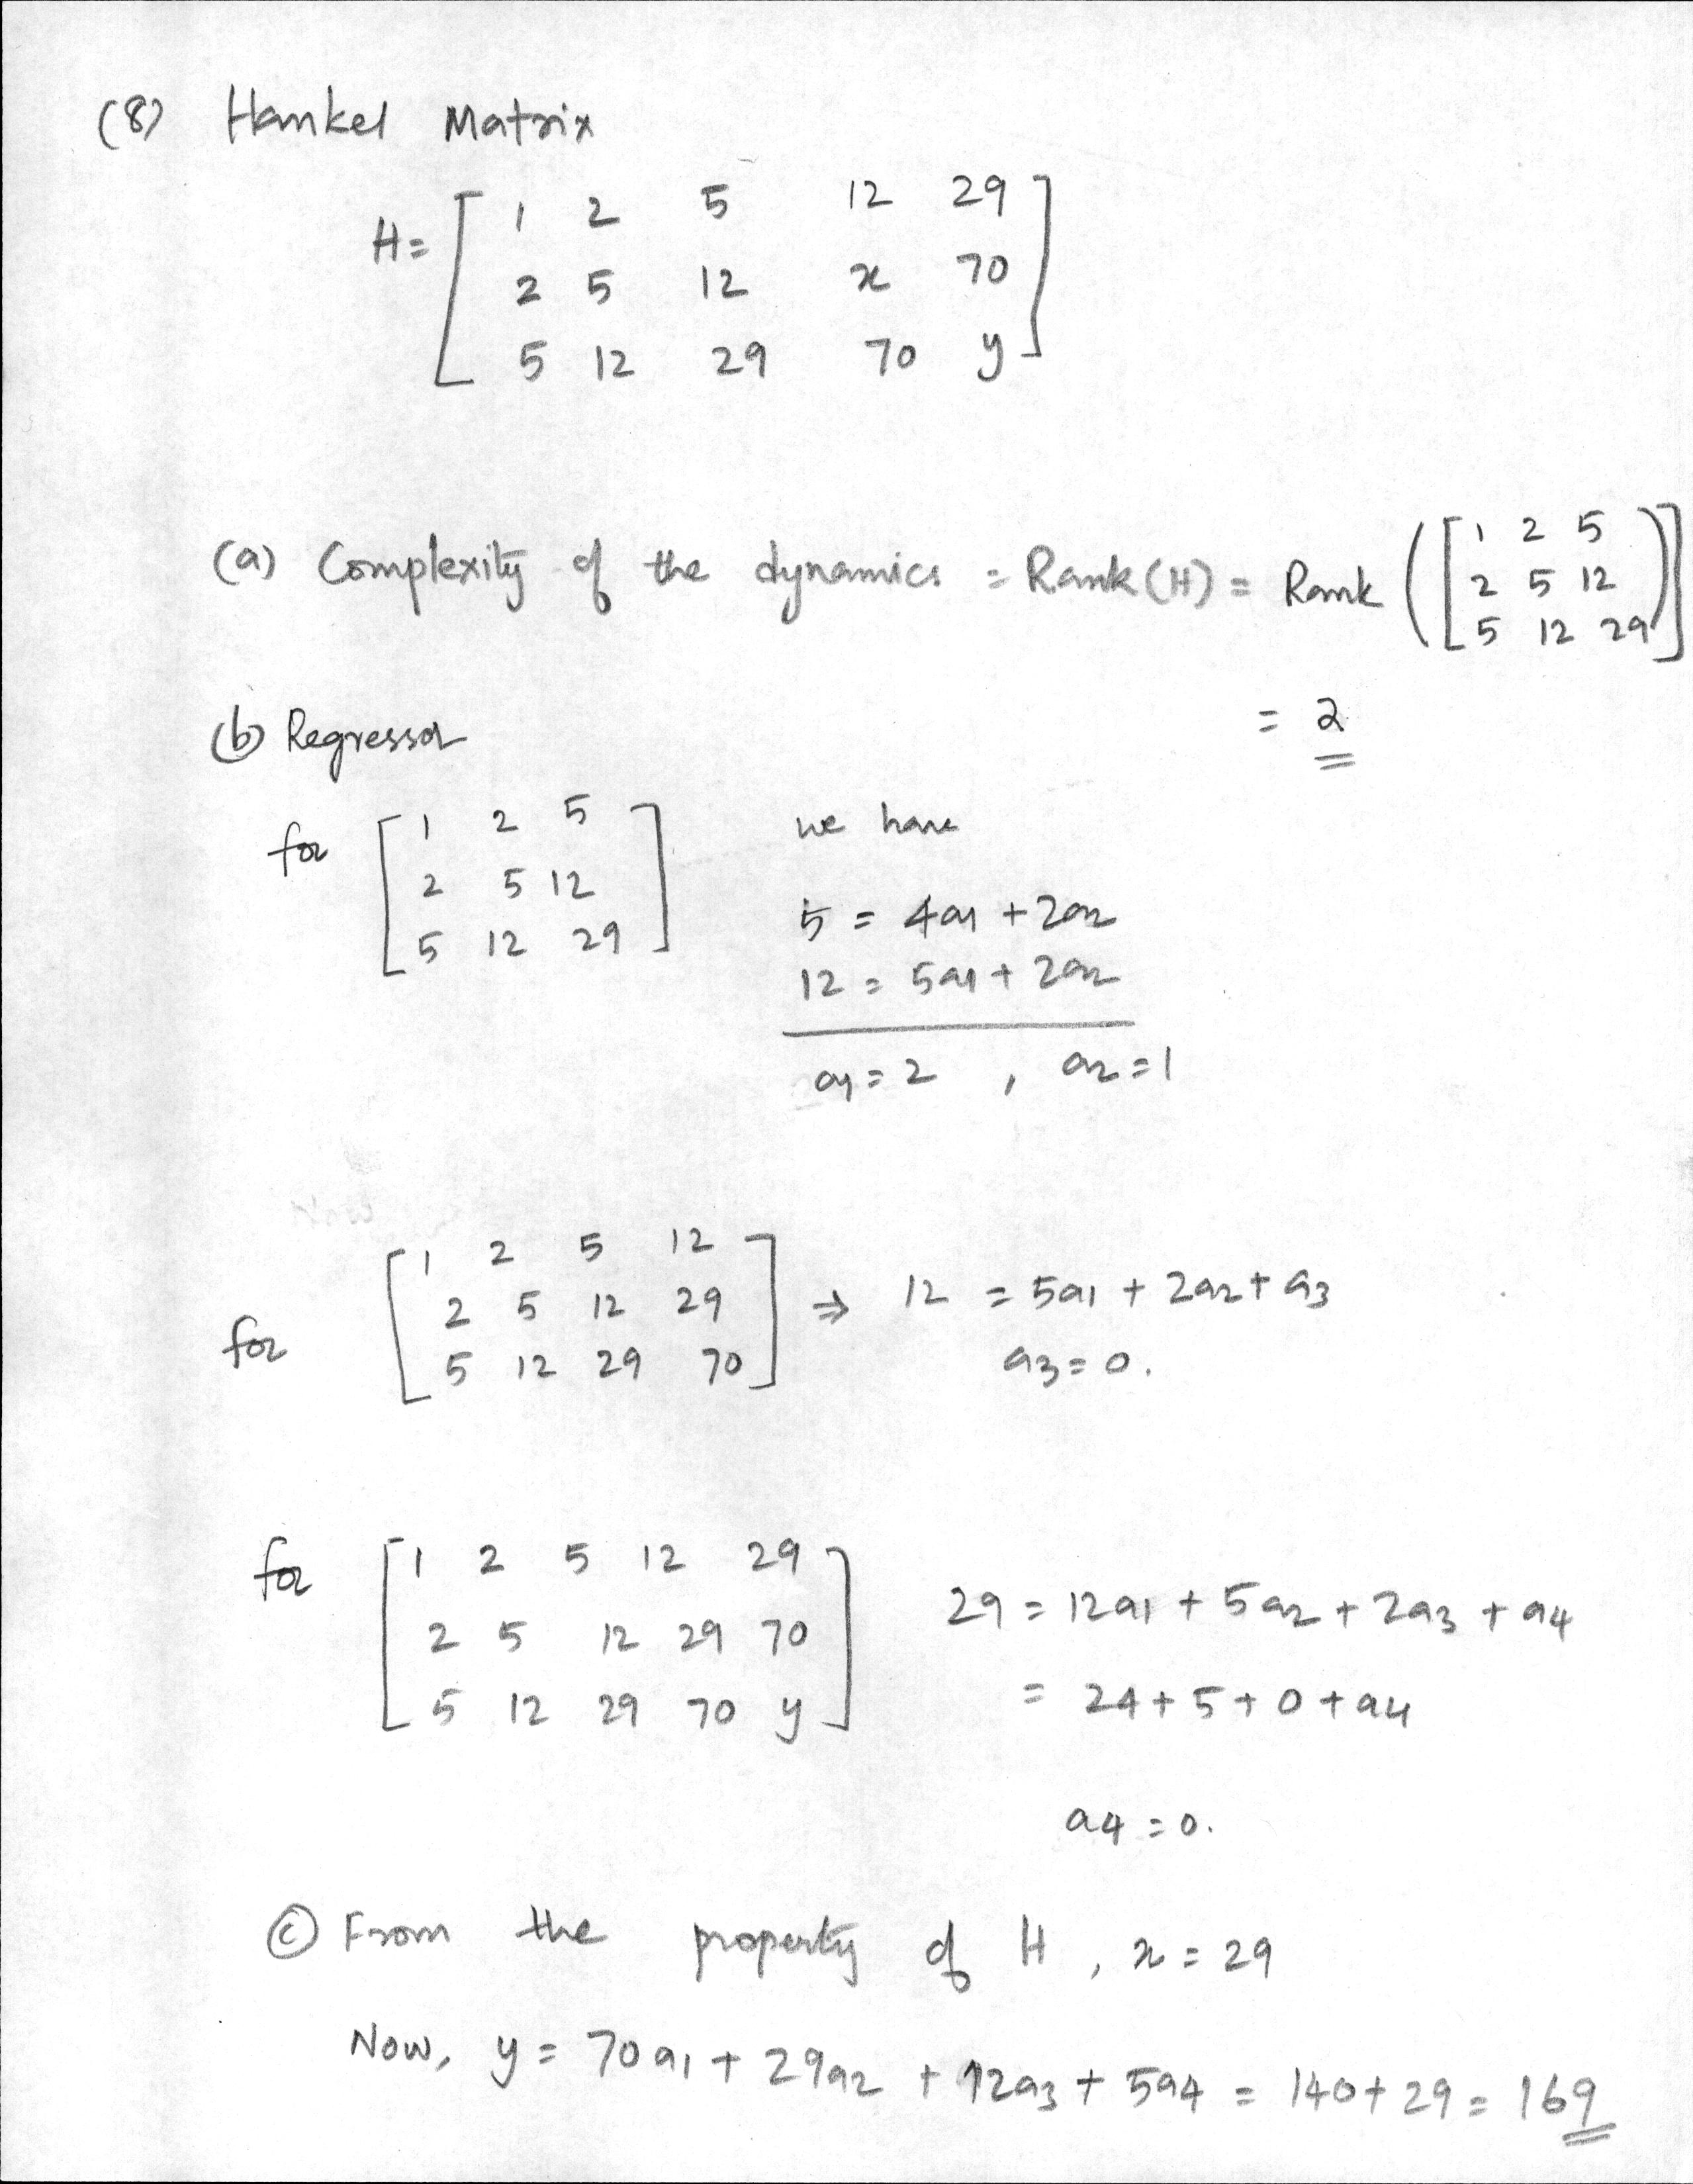 (8) Hankel Matrix
H = [ 1 2 5 12 29
2 5 12 x 70
5 12 29 70 y ]
(a) Complexity of the dynamics = Rank (H) = Rank ( [ 1 2 5
2 5 12
5 12 29 ] )
= 2
(b) Regressor
for [ 1 2 5
2 5 12
5 12 29 ]
we have
5 = 4a1 + 2a2
12 = 5a1 + 2a2
a1 = 2 , a2 = 1
for [ 1 2 5 12
2 5 12 29
5 12 29 70 ] ⇒ 12 = 5a1 + 2a2 + a3
a3 = 0.
for [ 1 2 5 12 29
2 5 12 29 70
5 12 29 70 y ]
29 = 12a1 + 5a2 + 2a3 + a4
= 24 + 5 + 0 + a4
a4 = 0.
(c) From the property of H , x = 29
Now, y = 70a1 + 29a2 + 12a3 + 5a4 = 140 + 29 = 169